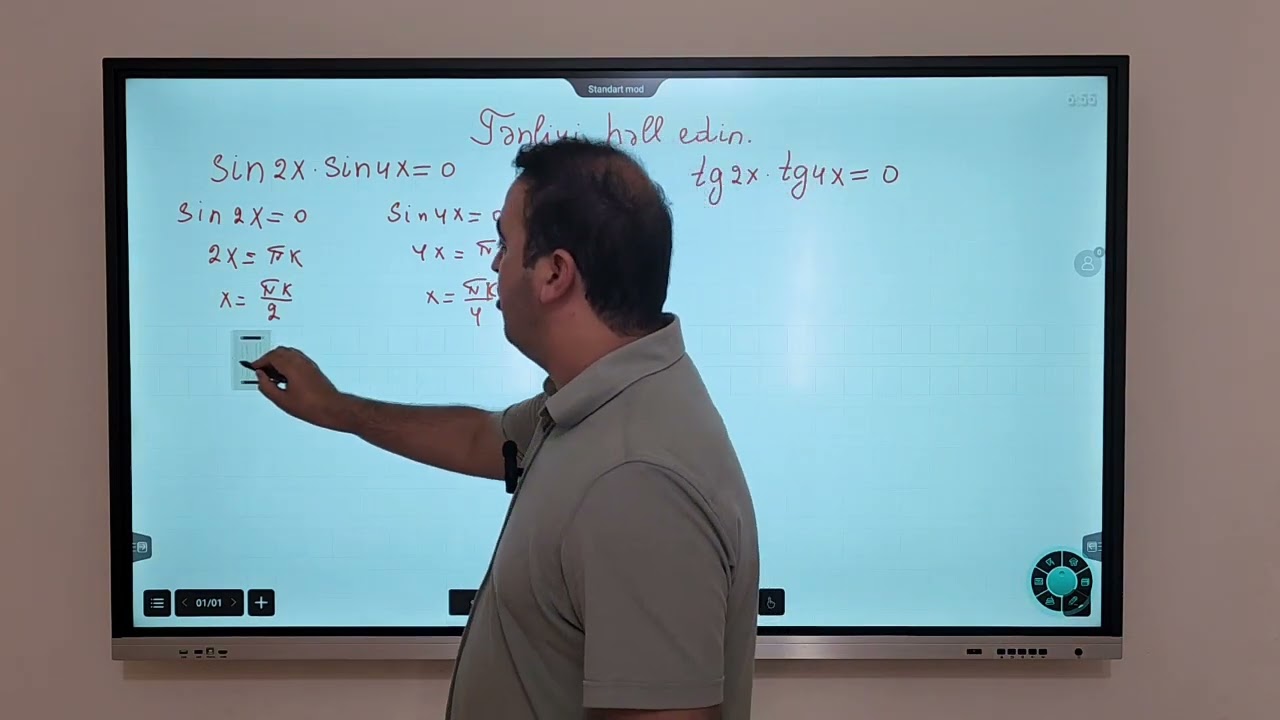 Standart mod
Tənliyi həll edin.
Sin2x·Sin4x=0
tg2x·tg4x=0
Sin2x=0
Sin4x=0
2x=πk
4x=π
x=πk/2
x=πk/4
01/01